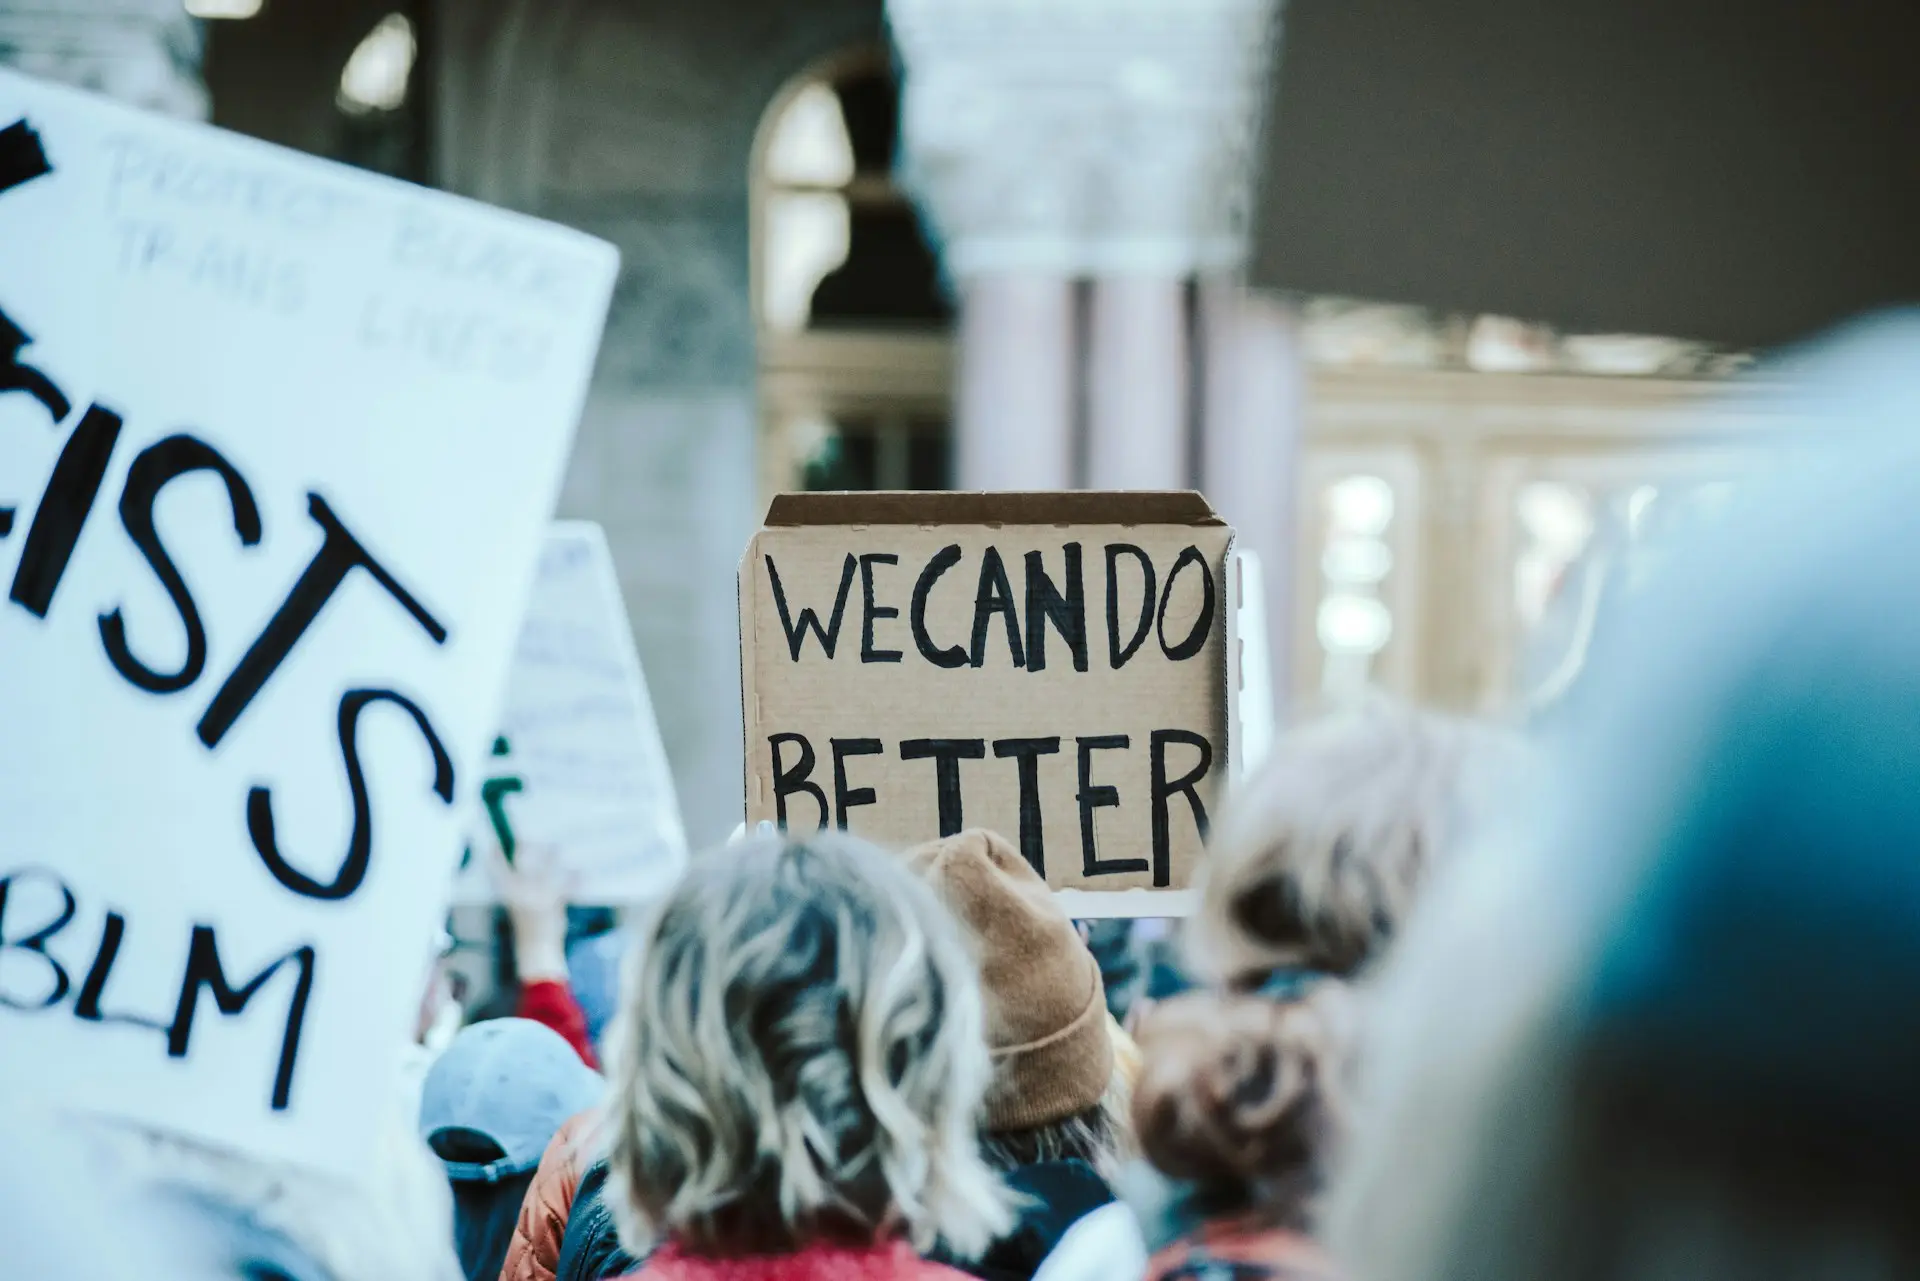 PROTECT BLACK
TRANS LIVES!
CISTS
BLM
WE CAN DO
BETTER